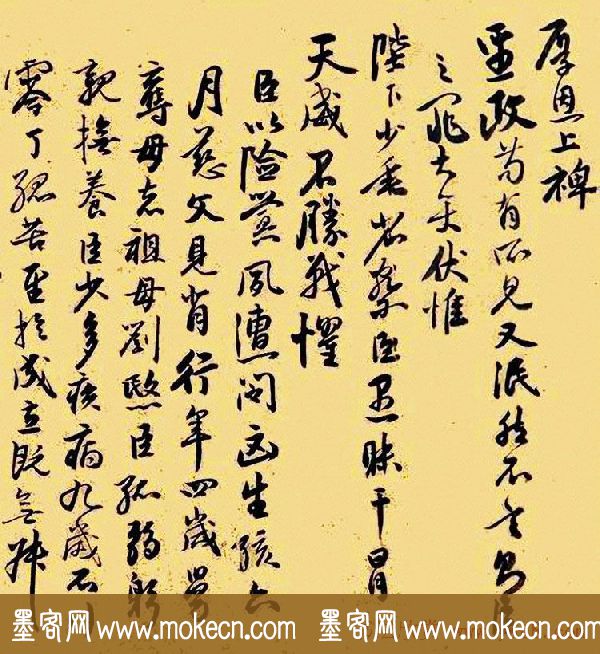 厚恩上裨
聖政苟有所見又泯然不言則臣
之罪大矣伏惟
陛下少垂省察臣愚昧干冒
天威不勝戰懼
臣以險釁夙遭閔凶生孩六
月慈父見背行年四歲舅
奪母志祖母劉愍臣孤弱躬
親撫養臣少多疾病九歲不行
零丁孤苦至於成立既無叔
墨客网 www.mokecn.com 墨客网 www.mokecn.com